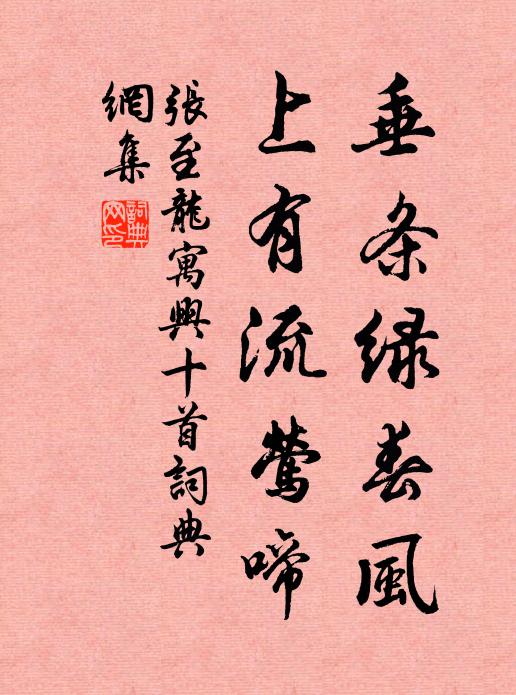 垂条绿春風
上有流莺啼
張至龍寓興十首詞典
網集
詞典
网印